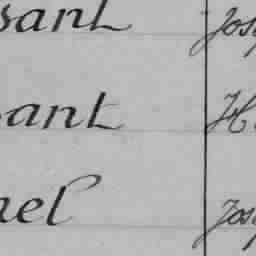 sant Jos
sant H
nel Jos